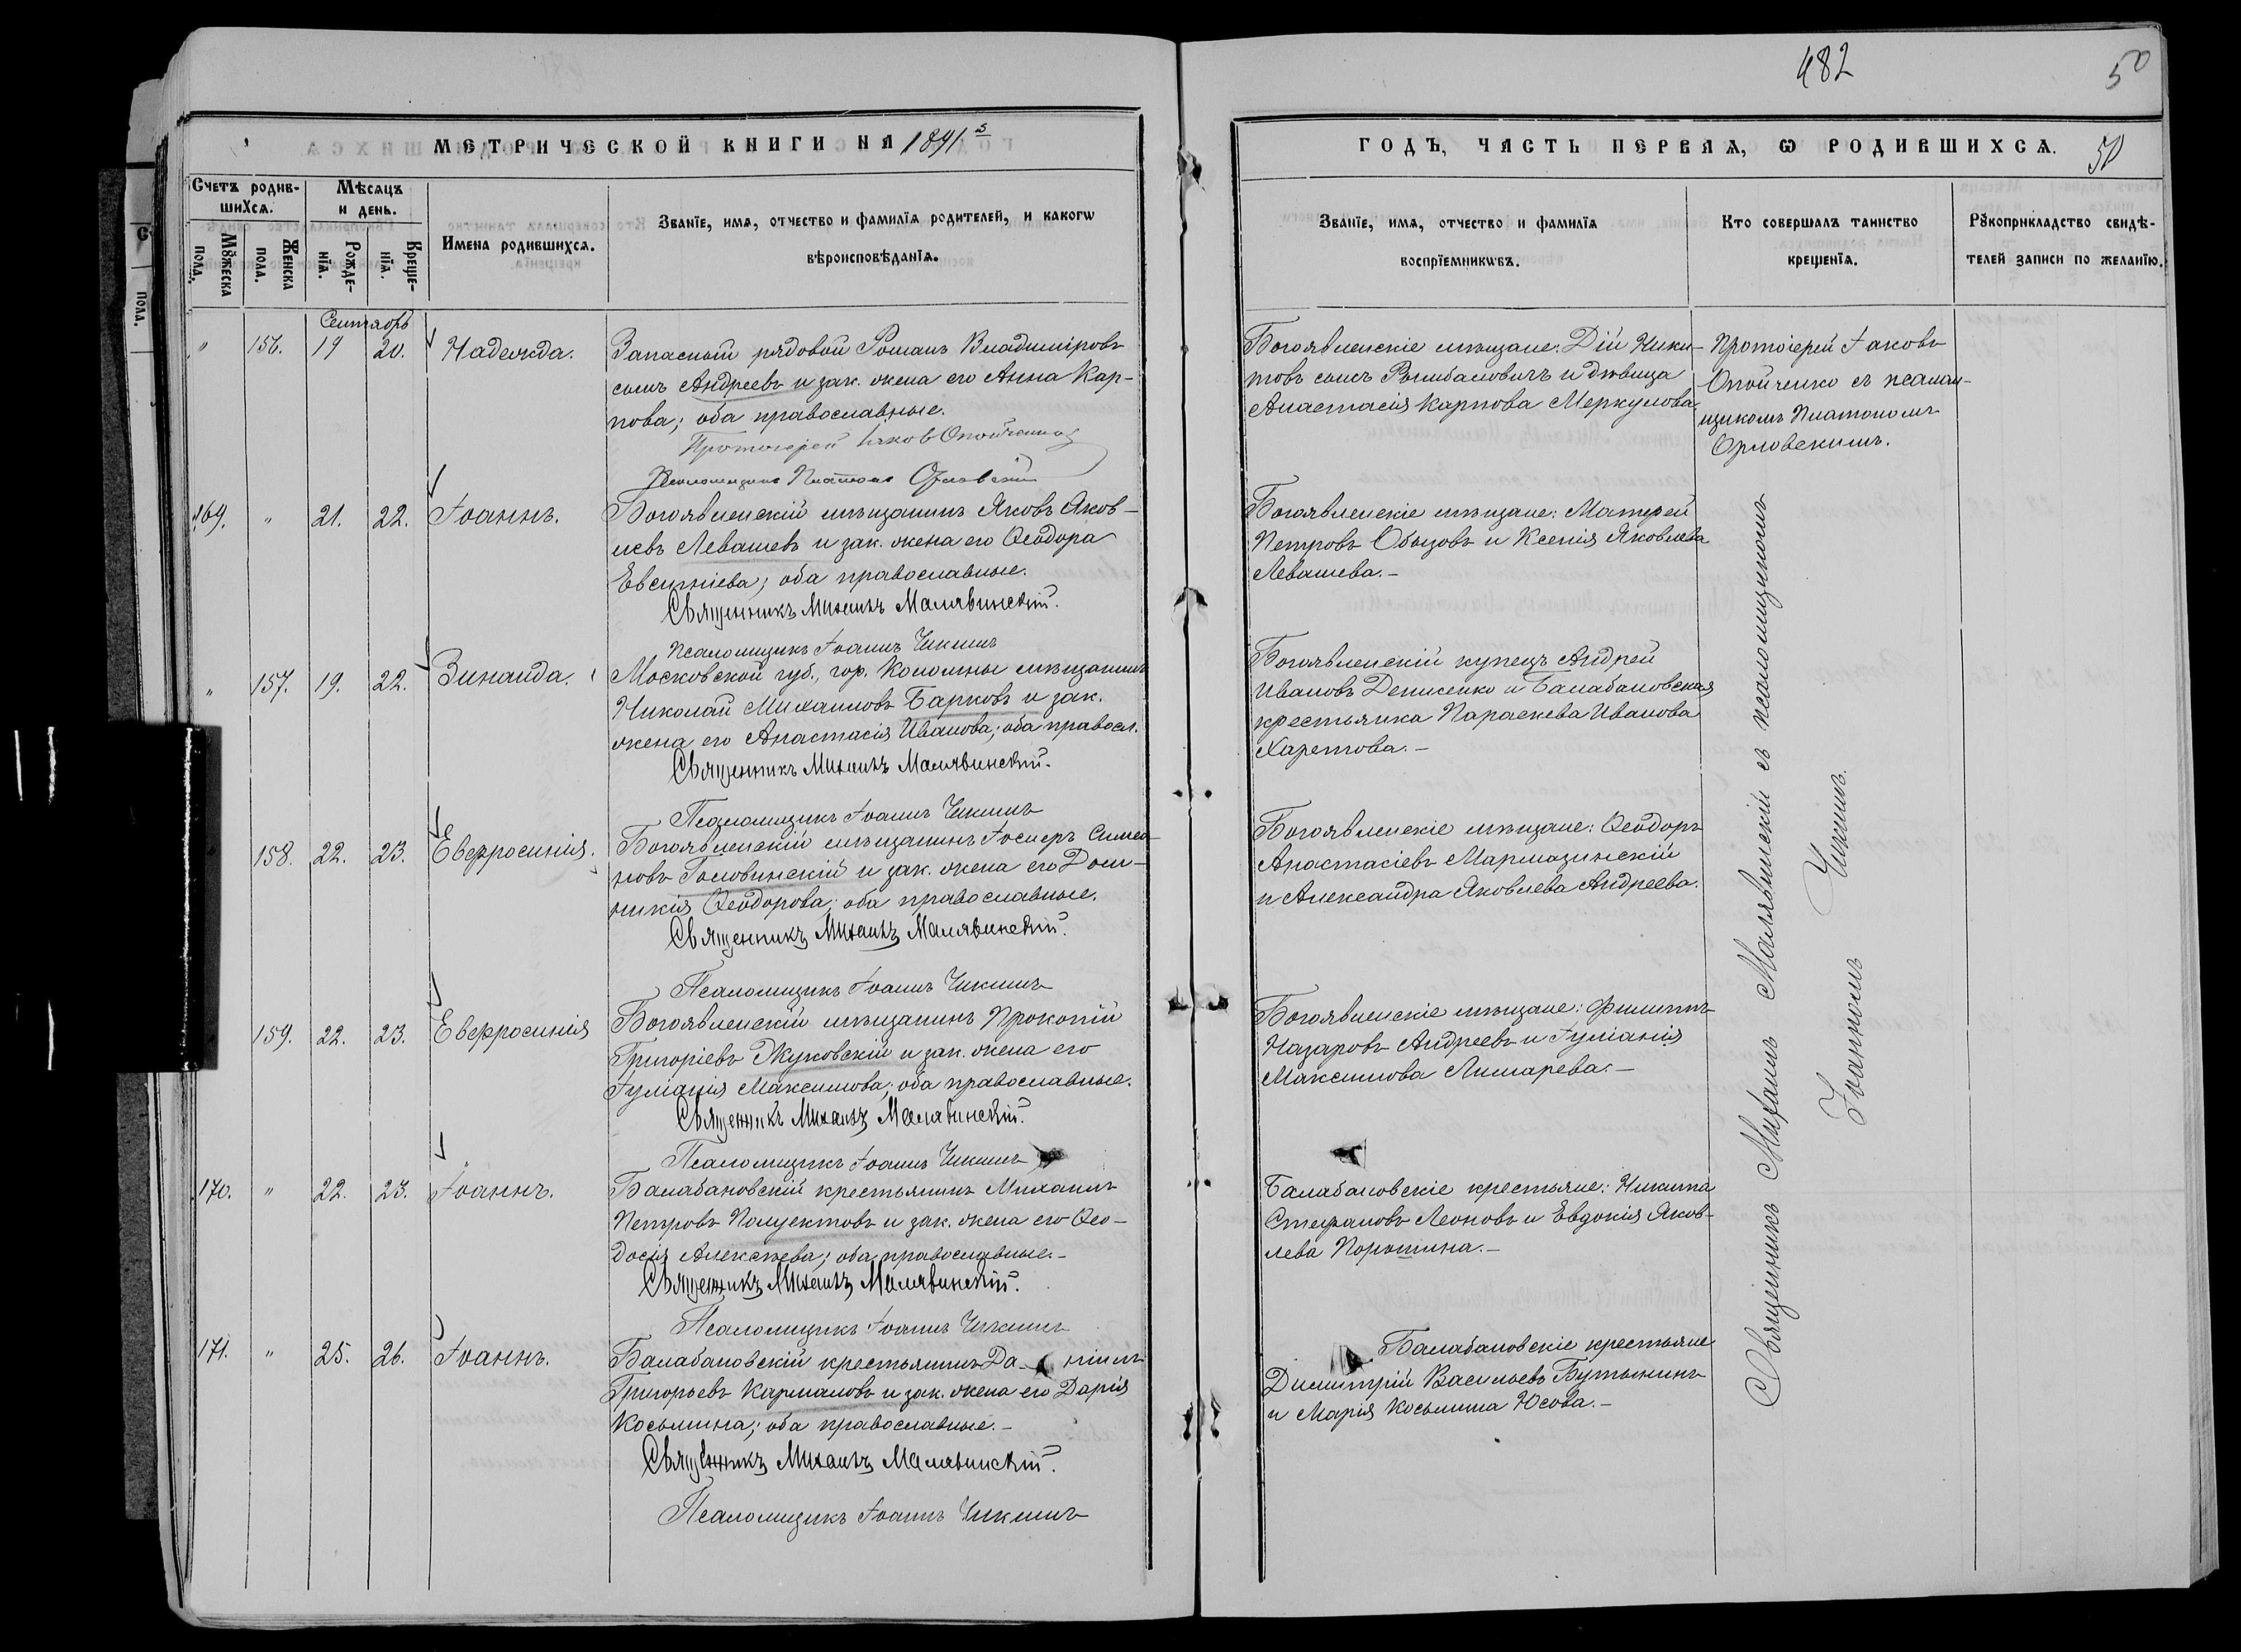 482
50
МЕТРИЧЕСКОЙ КНИГИ НА 1891 й
ГОДЪ, ЧАСТЬ ПЕРВАЯ, Ѡ РОДИВШИХСѦ.
50
Счетъ родив-
шихсѧ.
Мꙋжеска
пола.
Женска
пола.
Мѣсѧцъ
и день.
Рожде-
нїѧ.
Креще-
нїѧ.
Имена родившихсѧ.
Званїе, имѧ, отчество и фамилїѧ родителей, и какогѡ
вѣроисповѣданїѧ.
Званїе, имѧ, отчество и фамилїѧ
воспрїемникѡвъ.
Кто совершалъ таинство
крещенїѧ.
Рꙋкоприкладство свидѣ-
телей записи по желанїю.
Сентябрь
" 156. 19 20. Надежда.
Запасный рядовой Романъ Владиміровъ
сынъ Андреевъ и зак. жена его Анна Кар-
пова; оба православные.
Протоіерей Іаковъ Опойченко
Псаломщикъ Платонъ Орловскій
Богоявленскіе мѣщане: Дій Ники-
товъ сынъ и дѣвица
Анастасія Карпова Меркулова
Протоіерей Іаковъ
Опойченко съ псалом-
щикомъ Платономъ
Орловскимъ.
169. " 21. 22. Іоаннъ.
Богоявленскій мѣщанинъ Яковъ Яков-
левъ Левашевъ и зак. жена его Ѳеодора
Евсигніева; оба православные.
Священникъ Михаилъ Малявинскій.
Псаломщикъ Іоаннъ Чикинъ
Богоявленскіе мѣщане: Матѳей
Петровъ Обызовъ и Ксенія Яковлева
Левашева.–
" 157. 19. 22. Зинаида.
Московской губ., гор. Коломны мѣщанинъ
Николай Михаиловъ Барковъ и зак.
жена его Анастасія Иванова; оба правосл.
Священникъ Михаилъ Малявинскій.
Псаломщикъ Іоаннъ Чикинъ
Богоявленскій купецъ Андрей
Ивановъ Денисенко и Балабановская
крестьянка Параскева Иванова
Харетова.–
158. 22. 23. Евфросинія.
Богоявленскій мѣщанинъ Іосифъ Симео-
новъ Головинскій и зак. жена его Дом-
никія Ѳеодорова; оба православные.
Священникъ Михаилъ Малявинскій.
Псаломщикъ Іоаннъ Чикинъ
Богоявленскіе мѣщане: Ѳеодоръ
Анастасіевъ Мармазинскій
и Александра Яковлева Андреева.
159. 22. 23. Евфросинія
Богоявленскій мѣщанинъ Прокопій
Григоріевъ Жуковскій и зак. жена его
Іуліанія Максимова; оба православные.
Священникъ Михаилъ Малявинскій.
Псаломщикъ Іоаннъ Чикинъ
Богоявленскіе мѣщане: Филиппъ
Назаровъ Андреевъ и Іуліанія
Максимова Лимарева.–
170. " 22. 23. Іоаннъ.
Балабановскій крестьянинъ Михаилъ
Петровъ Полуектовъ и зак. жена его Ѳео-
досія Алексѣева; оба православные.–
Священникъ Михаилъ Малявинскій.
Псаломщикъ Іоаннъ Чикинъ
Балабановскіе крестьяне: Никита
Стефановъ Леоновъ и Евдокія Яков-
лева Порошина.–
171. " 25. 26. Іоаннъ.
Балабановскій крестьянинъ Да- ніилъ
Григорьевъ Кармановъ и зак. жена его Дарія
Косьмина; оба православные.–
Священникъ Михаилъ Малявинскій.
Псаломщикъ Іоаннъ Чикинъ
Балабановскіе крестьяне
Димитрій Васильевъ Бутынинъ
и Марія Косьмина Юсова.–
Священникъ Михаилъ Малявинскій съ псаломщикомъ
Іоанномъ Чикинъ.